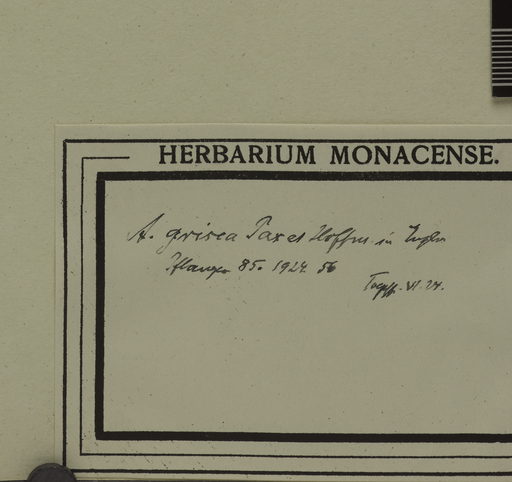 HERBARIUM MONACENSE.
A. grisea Pax et Hoffm. in Engler
Pflanzr. 85. 1924. 56
Toepff. VI. 24.